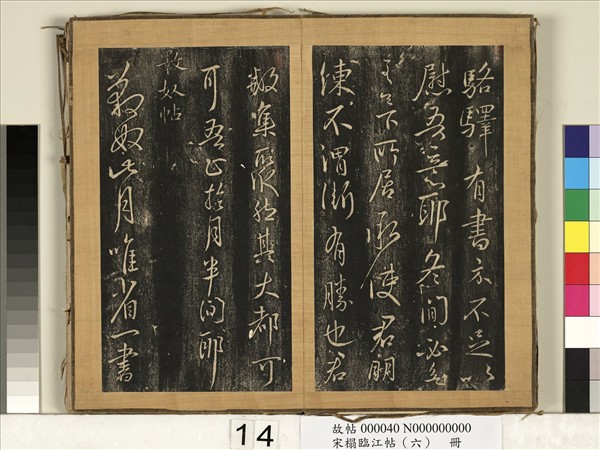 駱驛有書亦不足以
慰吾意耶冬間必
下所居
使君明
練不謂漸有勝也君
散集聚然其大都可
可吾正於月半間耶
數奴帖
數奴此月唯省一書
14
故帖 000040 N000000000
宋榻臨江帖(六) 冊